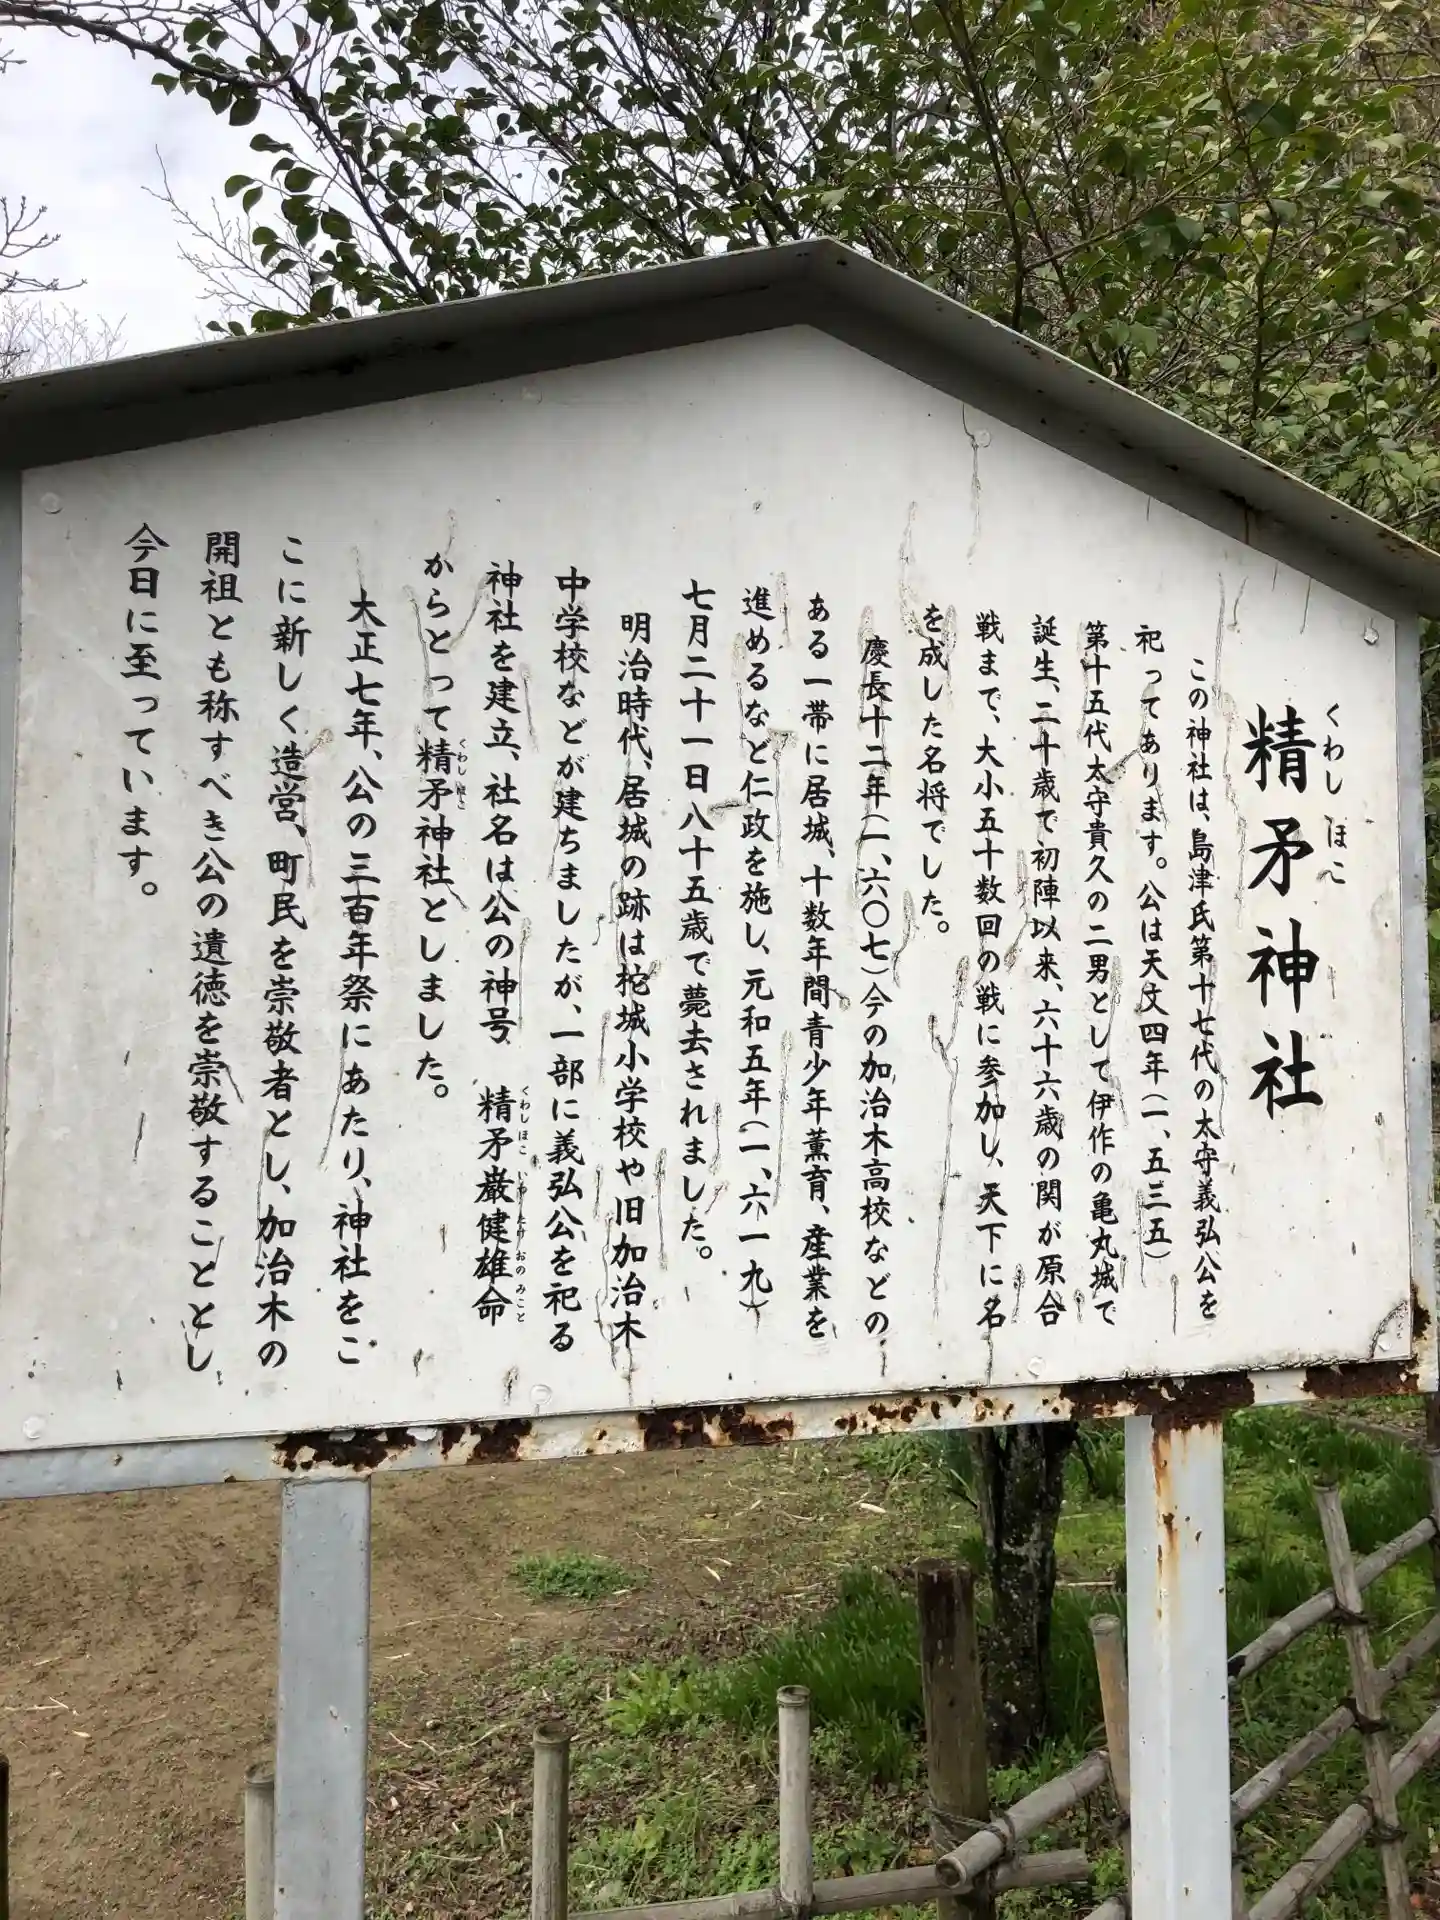 くわし ほこ
精矛神社
この神社は、島津氏第十七代の太守義弘公を
祀ってあります。公は天文四年(一、五三五)
第十五代太守貴久の二男として伊作の亀丸城で
誕生、二十歳で初陣以来、六十六歳の関が原合
戦まで、大小五十数回の戦に参加し、天下に名
を成した名将でした。
慶長十二年(一、六〇七)今の加治木高校などの
ある一帯に居城、十数年間青少年薫育、産業を
進めるなど仁政を施し、元和五年(一、六一九)
七月二十一日八十五歳で薨去されました。
明治時代、居城の跡は柁城小学校や旧加治木
中学校などが建ちましたが、一部に義弘公を祀る
神社を建立、社名は公の神号 精矛巌健雄命
くわし ほこ いわ たけ おの みこと
からとって精矛神社としました。
くわし ほこ
大正七年、公の三百年祭にあたり、神社をこ
こに新しく造営、町民を崇敬者とし、加治木の
開祖とも称すべき公の遺徳を崇敬することとし
今日に至っています。